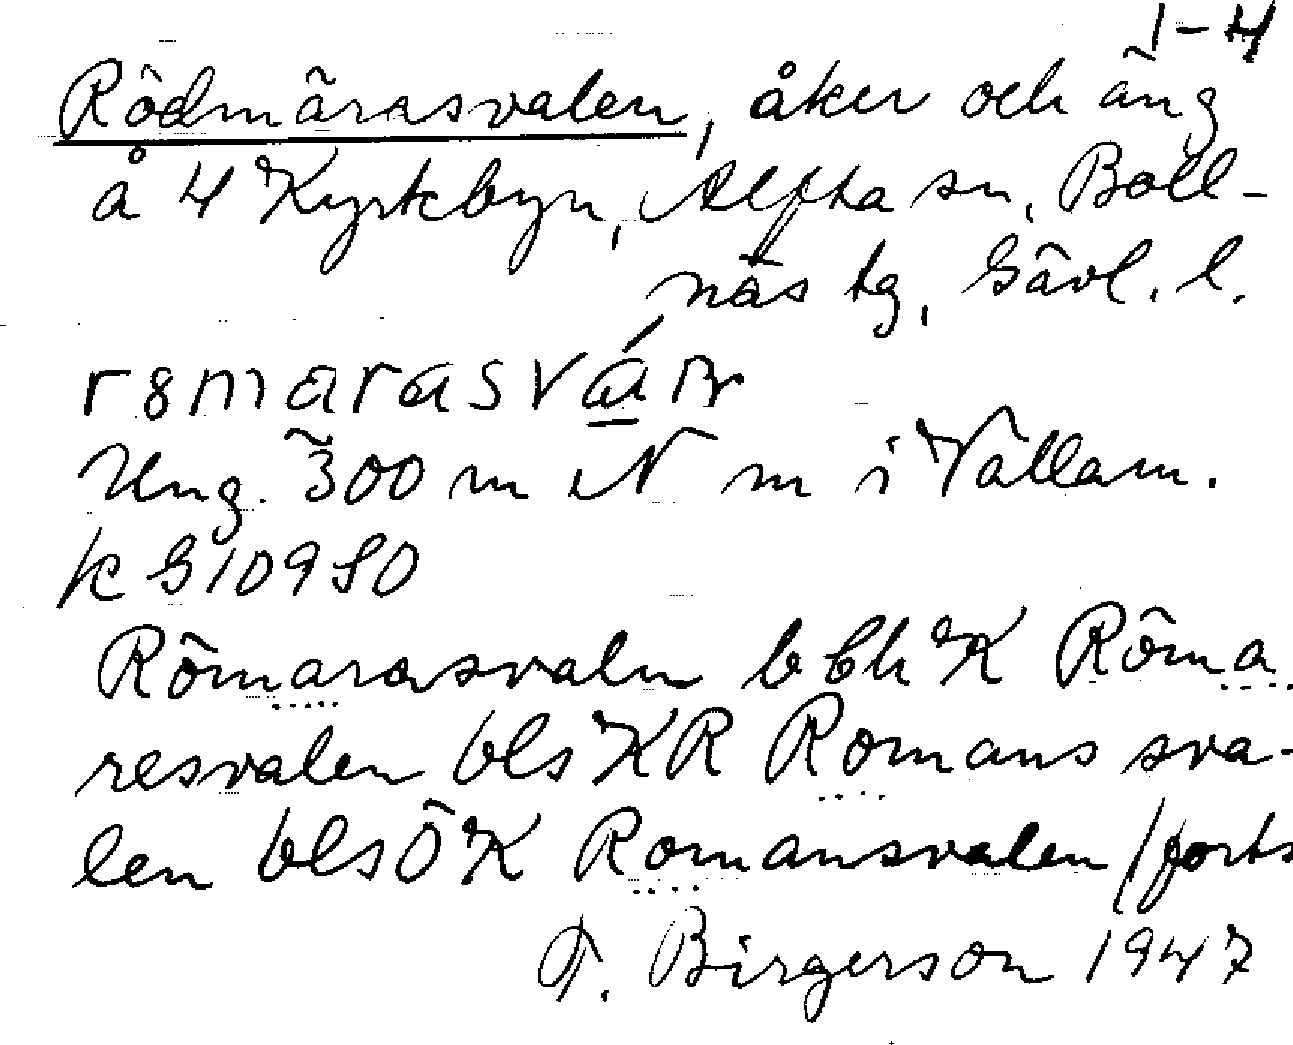 1-4
Rödmårasvalen, åker och äng
å 4 Kyrkbyn, Alfta sn, Boll-
näs tg, Gävl. l.
Ung. 300 m N m i Vallam.
k G10980
Römarasvaln b bh K Röma
resvalen bls KR Romans sva-
len bls Ö K Romansvalen /forts
F. Birgerson 1947